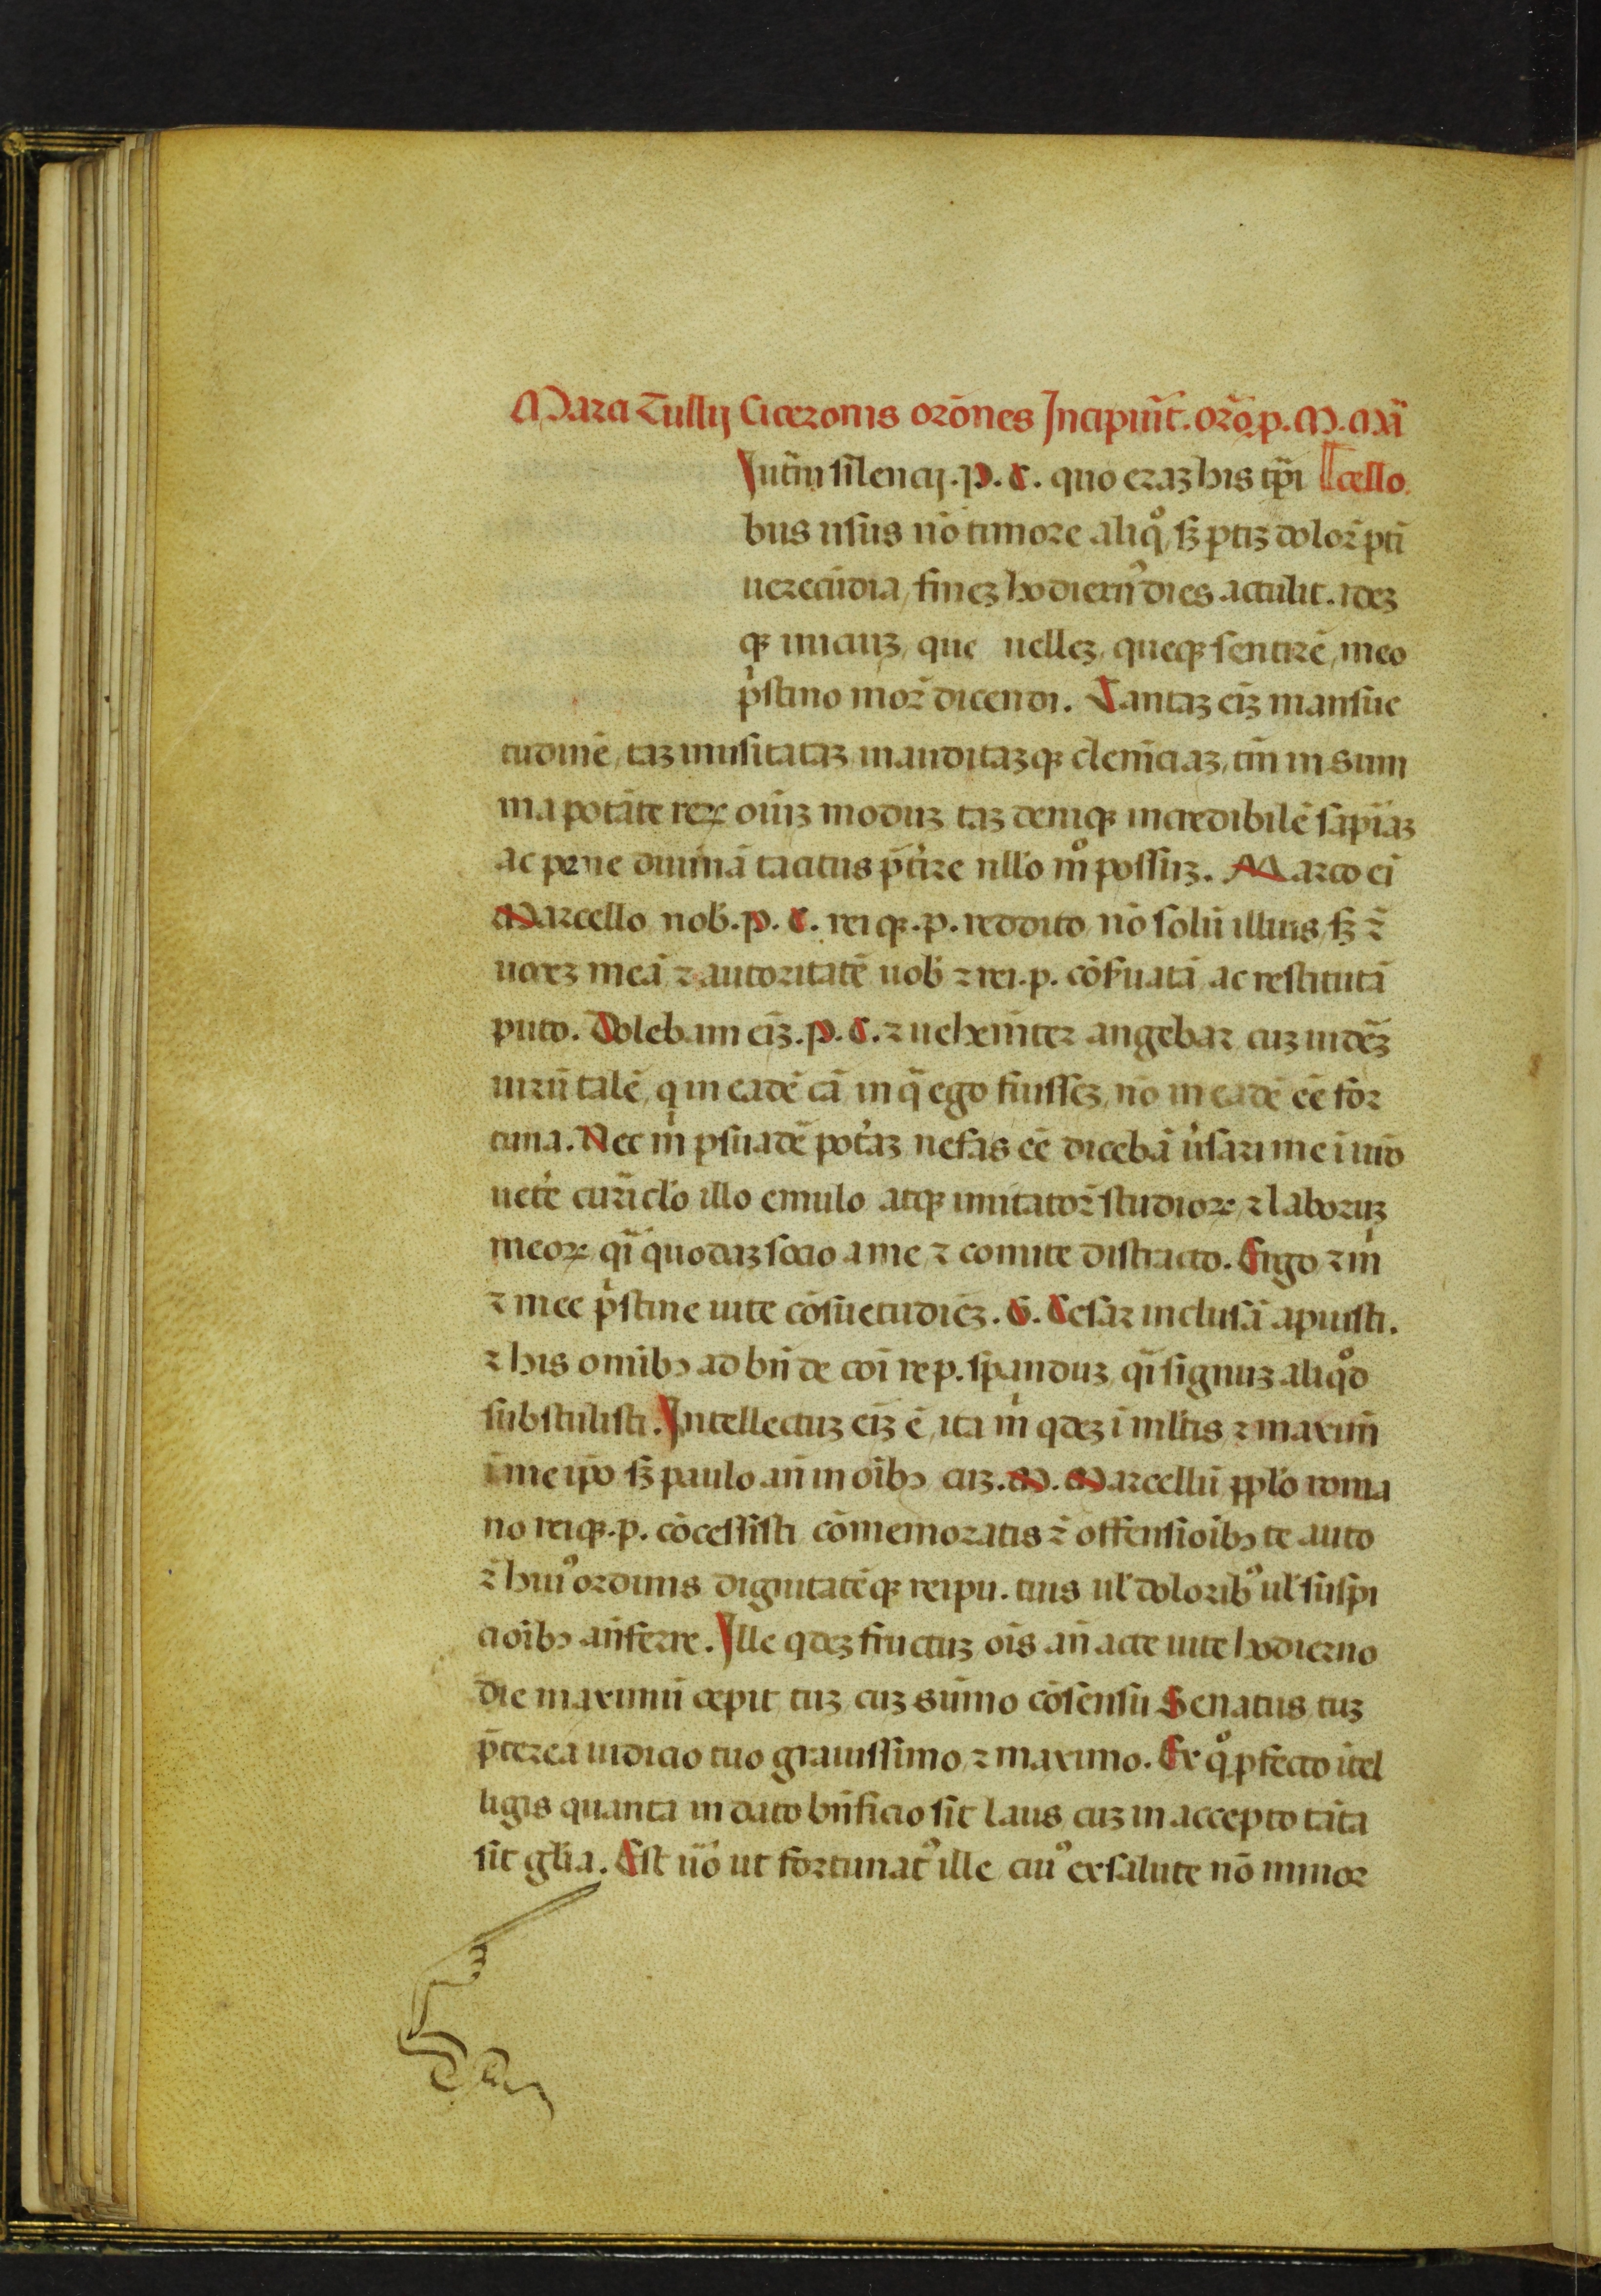 Marci Tullij Ciceronis orōnes Incipiūt. orō. p. M. Mar̄
Iutīni silencij. P. C. quo eraʒ his tp̄i cello.
bus usus nō timore aliqͦ, sʒ ptiʒ dolor̄ pti
uerecūdia, fineʒ hodiernꝰ dies attulit. ideʒ
qʒ iniciuʒ, que uelleʒ, queqʒ sentirē, meo
pͥstino mor̄ dicendi. Tantaʒ eīʒ mansue
tudinē, taʒ inusitataʒ inauditaʒqʒ clemēciaʒ, tm̄ in sum
ma potāte reꝝ oīuʒ moduʒ taʒ deniqʒ incredibilē sapīaʒ
ac pene diuinā tacitus p̄t'ire nllo mͦ possuʒ. Marco ei
Marcello nob. P. C. rei qʒ. p. reddito, nō solū illius, sʒ ⁊̄
uoceʒ meā ⁊ autoritatē uob ⁊ rei. p. cōſuatā, ac restitutā
puto. Dolebam eīʒ. P. C. ⁊ uehemīter angebar, cuʒ uidēʒ
uirū talē, q in eadē cā in q̄ ego fuisseʒ, nō in eadē eē for
tuna. Nec mͥ psuadē pot'aʒ nefas eē dicebā u'sari me ī nr̄o
uet'e curīclo illo emulo atqʒ imitator̄ studioꝝ, ⁊ laboruʒ
meoꝝ qͣi quodaʒ socio a me, ⁊ comite distracto. Ergo ⁊ mͥ
⁊ mee pͥstine uite cōsuetudīeʒ. G. Cesar inclusā apuisti.
⁊ his omībꝰ ad bn̄ de coī re p. spanduʒ, qͣi signuʒ aliqͦd
substulisti. Intellectuʒ eīʒ ē, ita mͥ qdeʒ ī mltis ⁊ maxim̄
ī me ip̄o sʒ paulo an̄ in oībꝰ cuʒ. M. Marcellū pplo roma
no reiqʒ. p. cōcessisti cōmemoratis ⁊̄ offensioībꝰ te auto
⁊̄ huiꝰ ordinis dignitatēqʒ reipu. tuis ul' doloribꝰ ul' suspi
cioībꝰ anferre. Ille qdeʒ fructuʒ oīs an̄ acte uite hodierno
die maximū cepit tuʒ cuʒ sūmo cōsensu Senatus, tuʒ
p̄terea iudicio tuo grauissimo, ⁊ maximo. Ex qͦ pfecto ītel
ligis quanta in dato bn̄ficio sit laus cuʒ in accepto tāta
sit gl̄ia. Est uͦo ut fortunatꝰ ille cuiꝰ ex salute nō minor